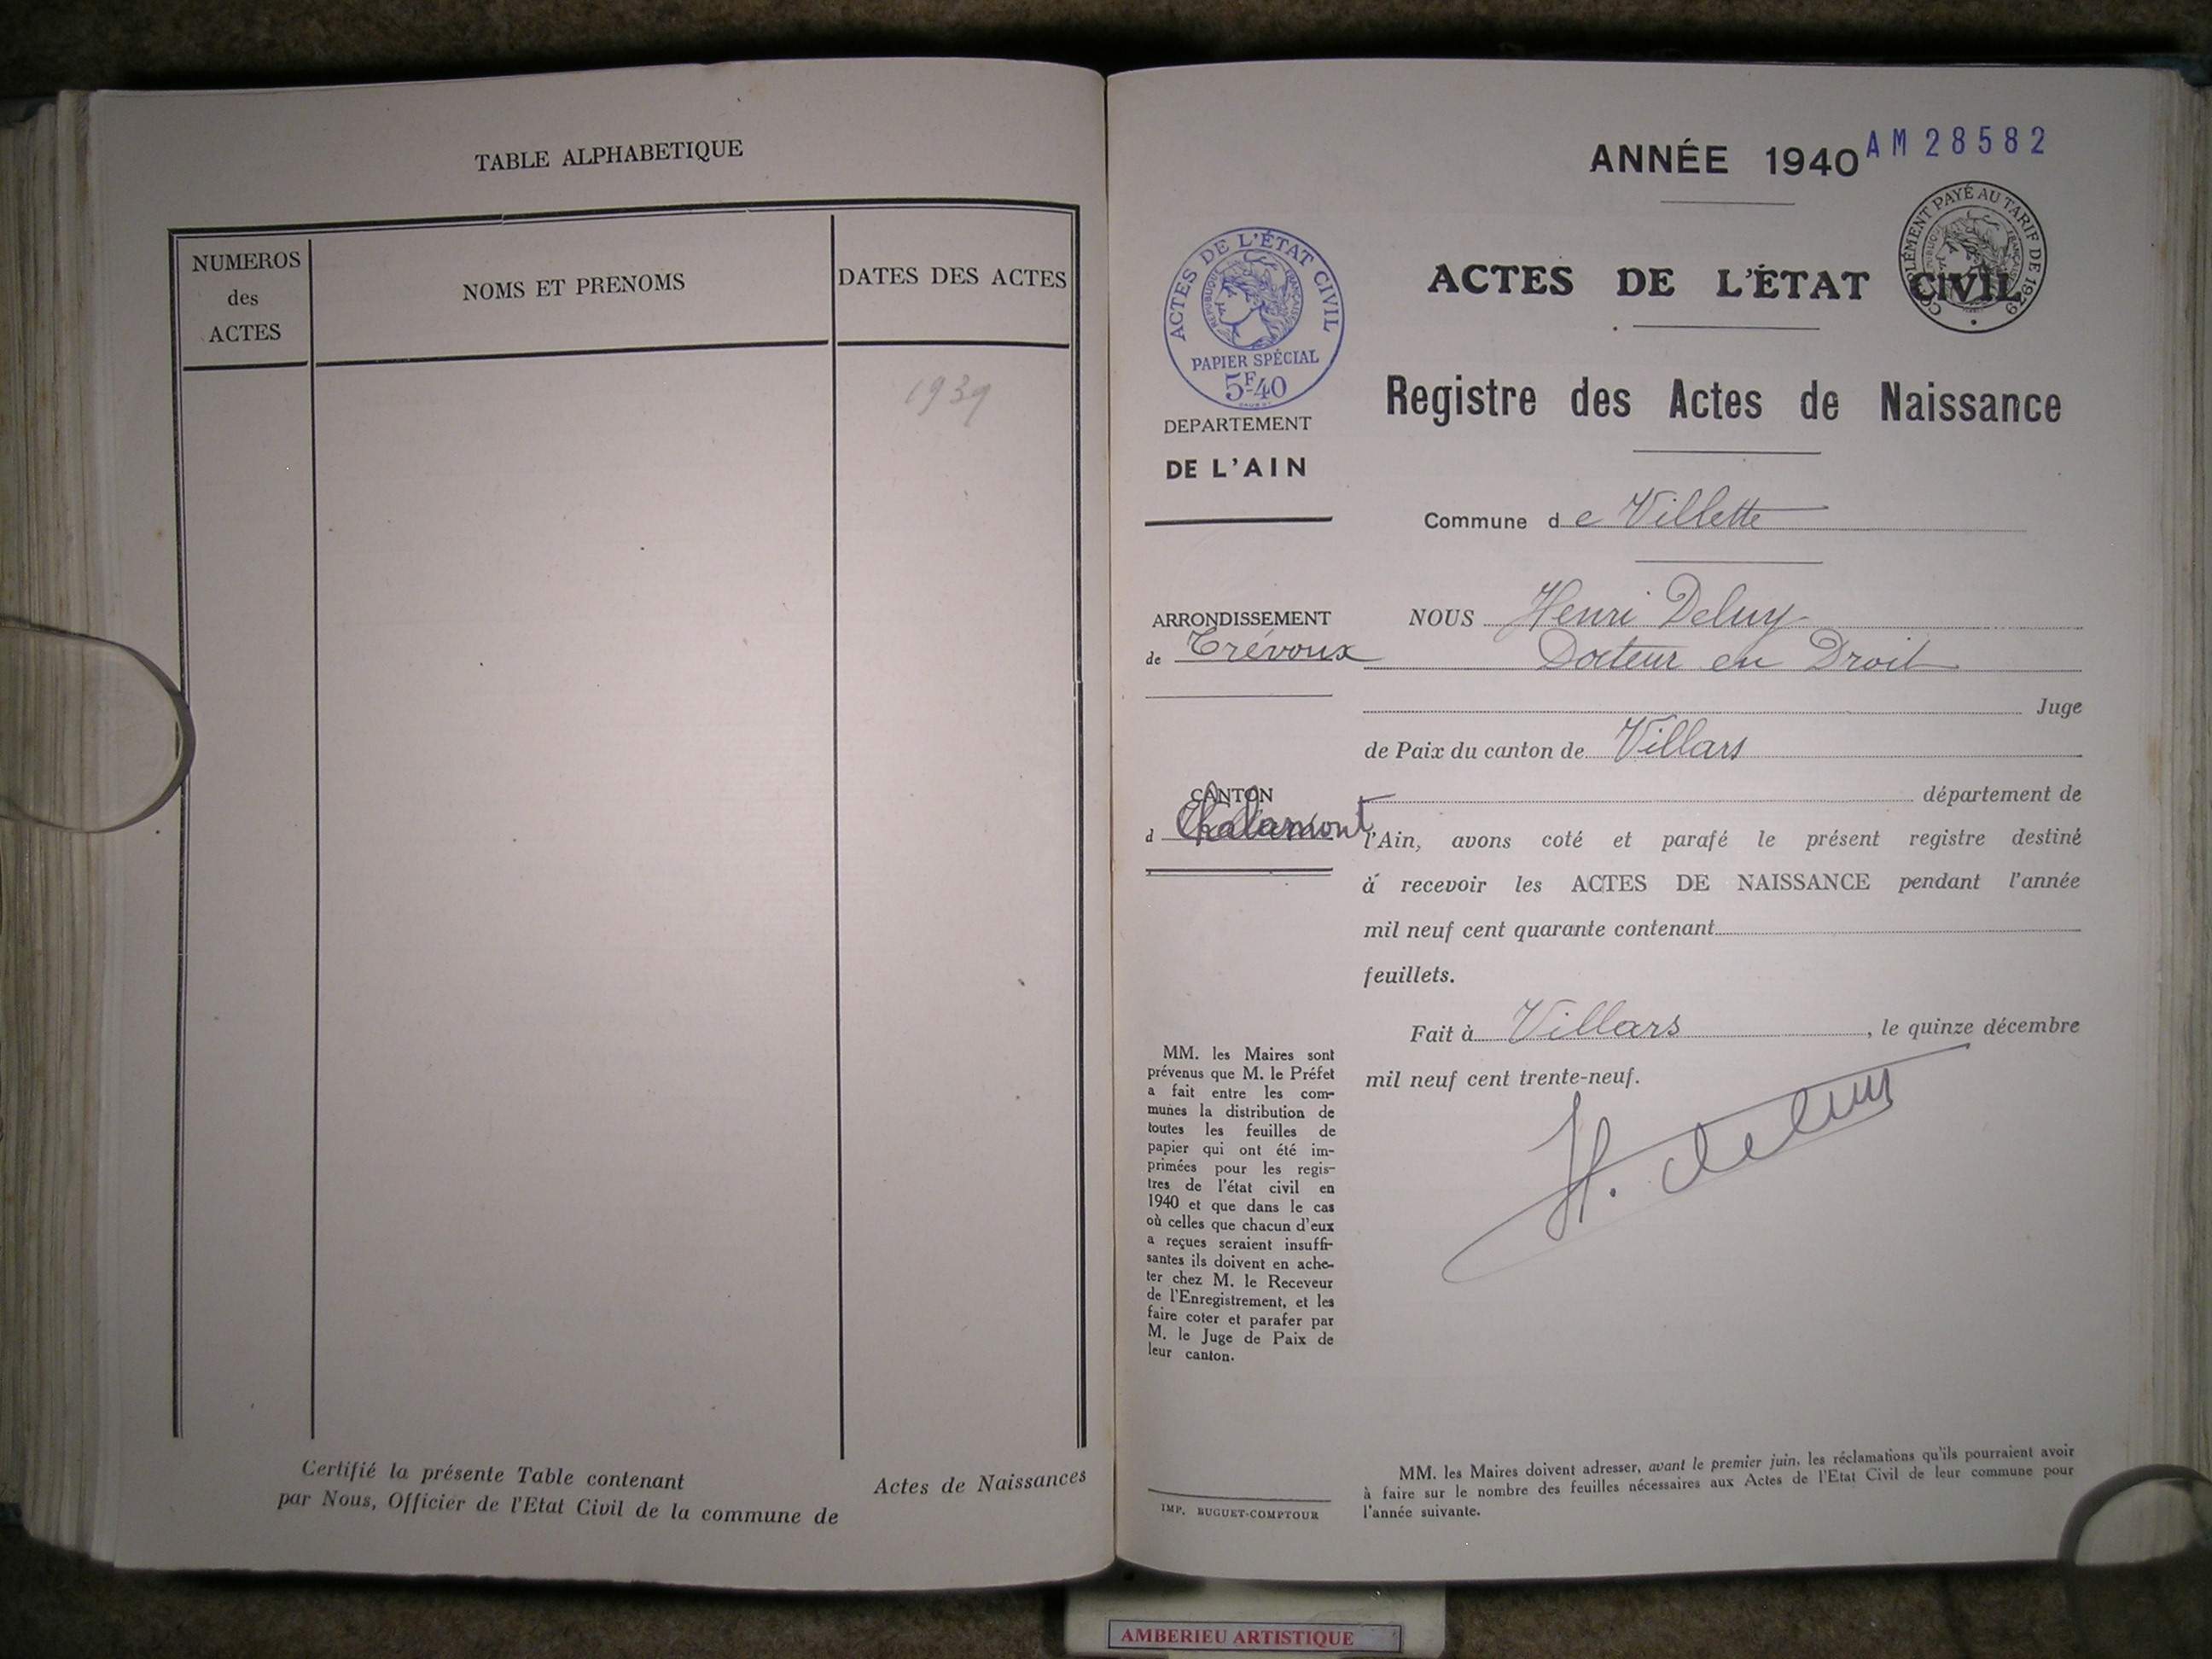 TABLE ALPHABETIQUE
NUMEROS
des
ACTES
NOMS ET PRENOMS
DATES DES ACTES
1939
Certifié la présente Table contenant Actes de Naissances
par Nous, Officier de l'Etat Civil de la commune de
ANNÉE 1940
AM 28582
ACTES DE L'ÉTAT CIVIL
COMPLÉMENT PAYÉ AU TARIF DE 1939
ACTES DE L'ÉTAT CIVIL
RÉPUBLIQUE FRANÇAISE
PAPIER SPÉCIAL
5F40
Registre des Actes de Naissance
DEPARTEMENT
DE L'AIN
Commune de Villette
ARRONDISSEMENT
de Trévoux
NOUS Henri Deluy
Docteur en Droit
Juge
de Paix du canton de Villars
CANTON
d Chalamont
département de
l'Ain, avons coté et parafé le présent registre destiné
à recevoir les ACTES DE NAISSANCE pendant l'année
mil neuf cent quarante contenant
feuillets.
Fait à Villars, le quinze décembre
mil neuf cent trente-neuf.
H. deluy
MM. les Maires sont
prévenus que M. le Préfet
a fait entre les com-
munes la distribution de
toutes les feuilles de
papier qui ont été im-
primées pour les regis-
tres de l'état civil en
1940 et que dans le cas
où celles que chacun d'eux
a reçues seraient insuffi-
santes ils doivent en ache-
ter chez M. le Receveur
de l'Enregistrement, et les
faire coter et parafer par
M. le Juge de Paix de
leur canton.
IMP. BUGUET-COMPTOUR
MM. les Maires doivent adresser, avant le premier juin, les réclamations qu'ils pourraient avoir
à faire sur le nombre des feuilles nécessaires aux Actes de l'Etat Civil de leur commune pour
l'année suivante.
AMBERIEU ARTISTIQUE